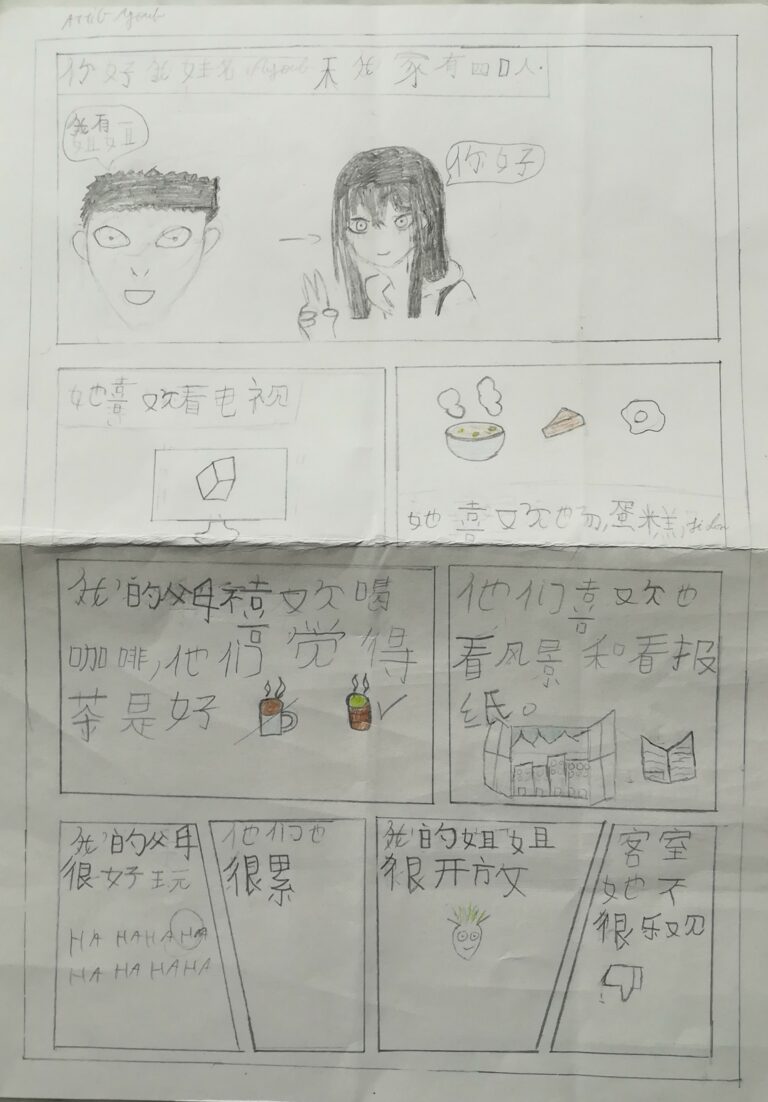 Artist Ayoub
你好我姓名Ayoub 我家有四口人.
我有
姐姐
你好
她喜欢看电视
她喜欢也奶,蛋糕,
我的父母喜欢喝
咖啡,他们觉得
茶是好
他们喜欢也
看风景和看报
纸。
我的父母
很好玩
HA HAHAHA
HA HA HAHA
他们也
很累
我的姐姐
很开放
客室
她不
很乐观